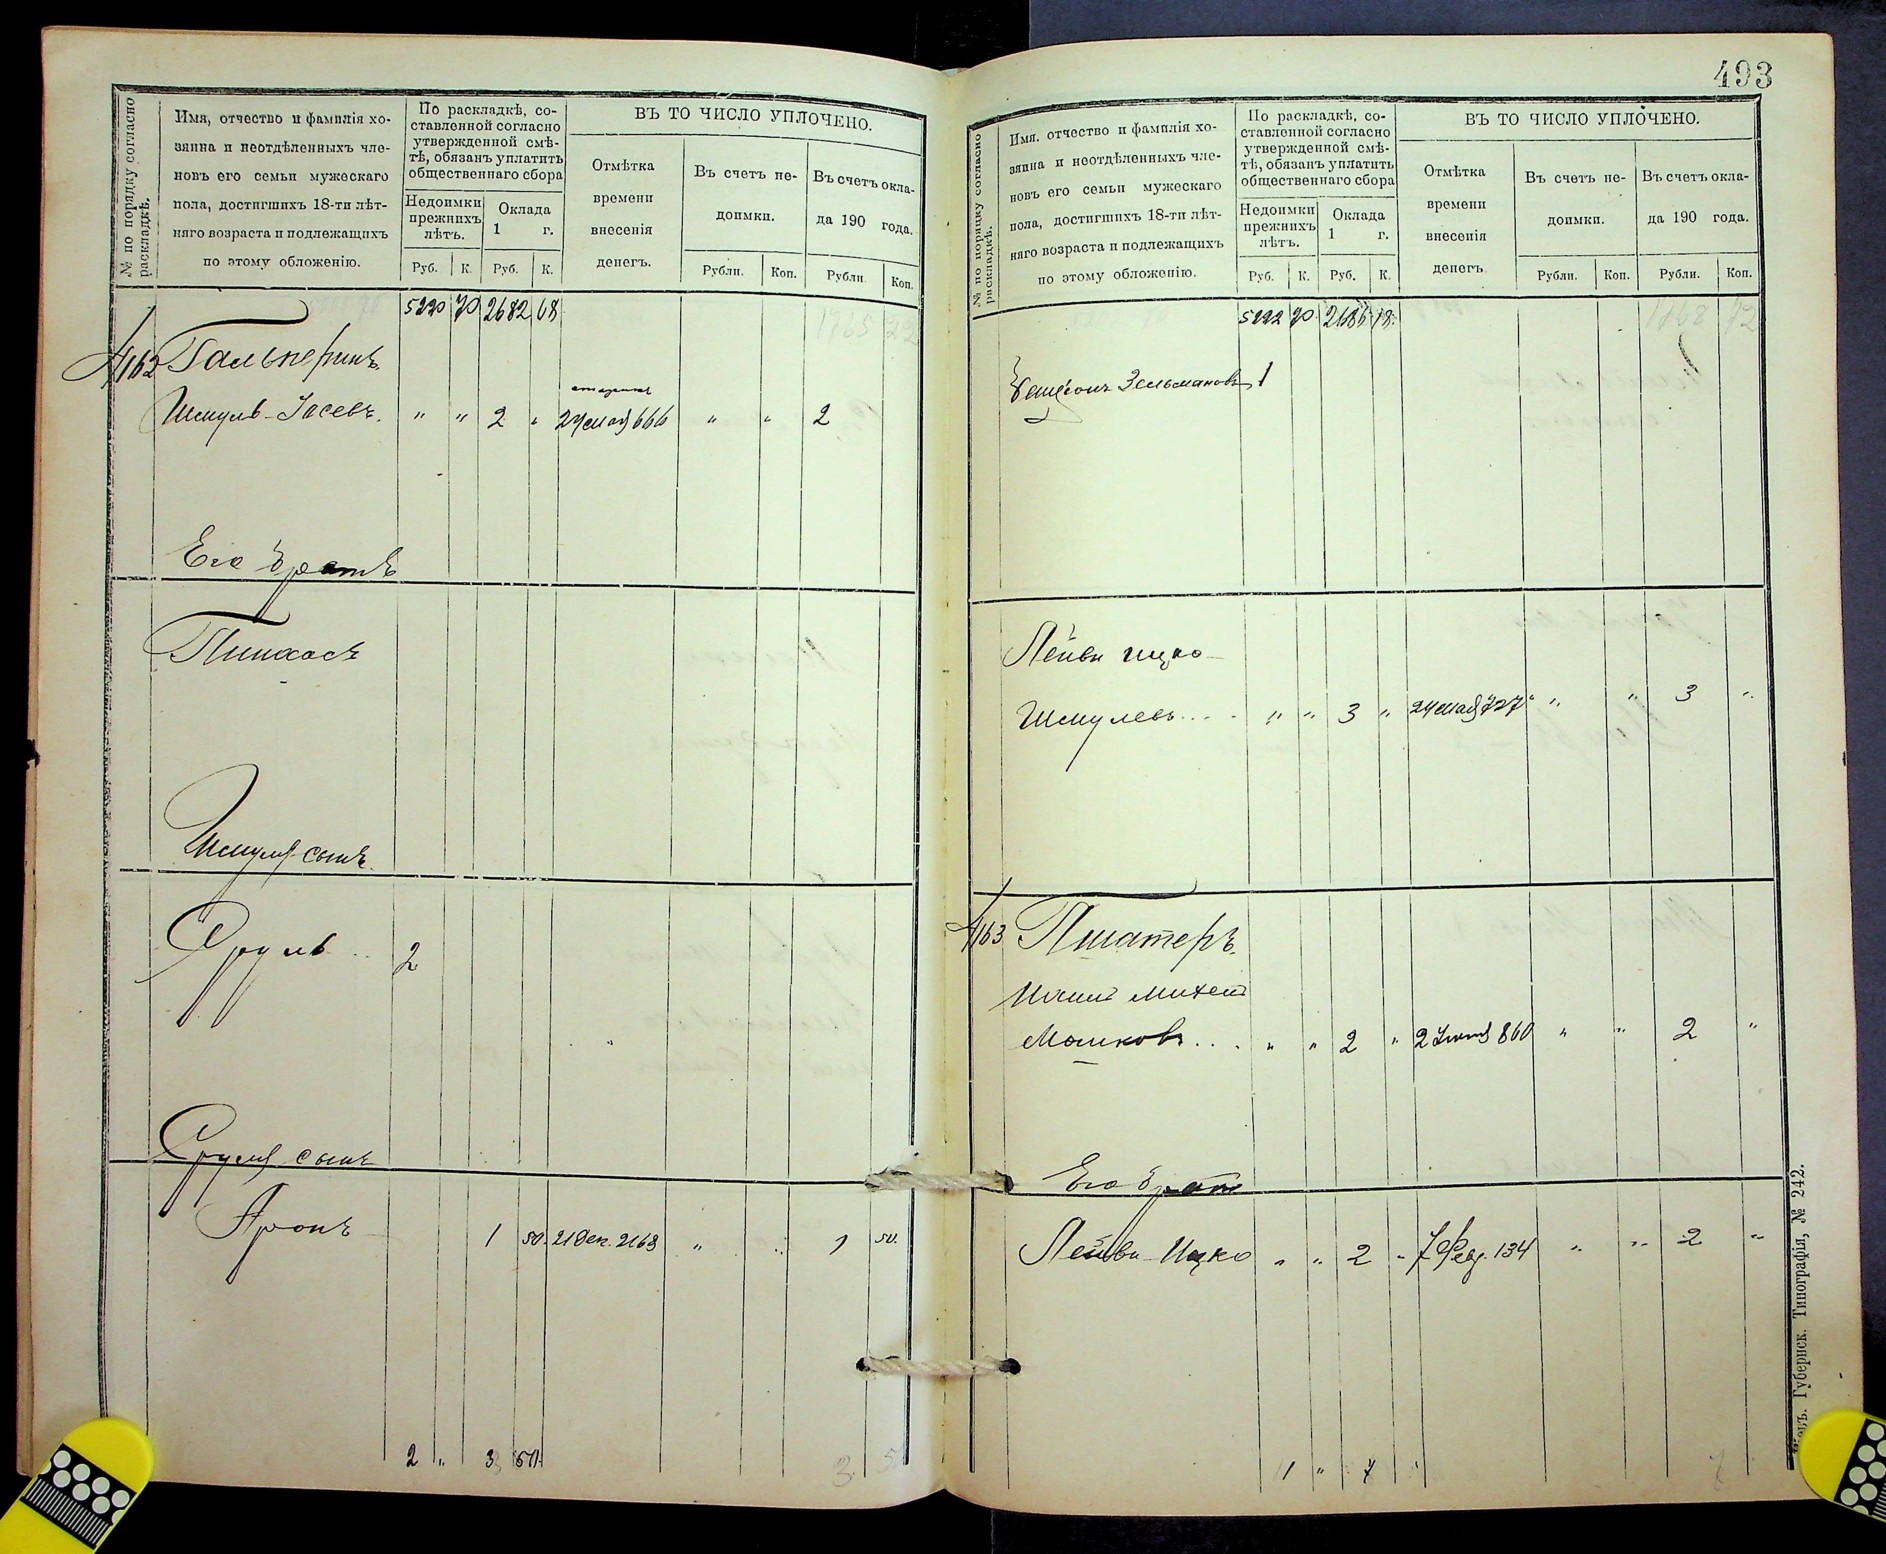 № по порядку согласно раскладкѣ.
Имя, отчество и фамилія хо-
зяина и неотдѣленныхъ чле-
новъ его семьи мужескаго
пола, достигшихъ 18-ти лѣт-
няго возраста и подлежащихъ
по этому обложенію.
По раскладкѣ, со-
ставленной согласно
утвержденной смѣ-
тѣ, обязанъ уплатить
общественнаго сбора
Недоимки
прежнихъ
лѣтъ.
Оклада
1 г.
Руб. К. Руб. К.
ВЪ ТО ЧИСЛО УПЛОЧЕНО.
Отмѣтка
времени
внесенія
денегъ.
Въ счетъ не-
доимки.
Въ счетъ окла-
да 190 года.
Рубли. Коп. Рубли. Коп.
5220 70 2682 68
1765 22
4162 Гальперинъ
Шмуль-Iосевъ. " " 2 " 24 мая 666 " " 2
Его братъ
Пинхасъ
Шмуля сынъ
Сруль .. 2
Сруля сынъ
Аронъ 1 50. 21 Дек. 2163 " " 1 50.
2 " 3 50.
3. 5
493
№ по порядку согласно раскладкѣ.
Имя. отчество и фамилія хо-
зяина и неотдѣленныхъ чле-
новъ его семьи мужескаго
пола, достигшихъ 18-ти лѣт-
няго возраста и подлежащихъ
по этому обложенію.
По раскладкѣ, со-
ставленной согласно
утвержденной смѣ-
тѣ, обязанъ уплатить
общественнаго сбора
Недоимки
прежнихъ
лѣтъ.
Оклада
1 г.
Руб. К. Руб. К.
ВЪ ТО ЧИСЛО УПЛОЧЕНО.
Отмѣтка
времени
внесенія
денегъ.
Въ счетъ не-
доимки.
Въ счетъ окла-
да 190 года.
Рубли. Коп. Рубли. Коп.
5222 70. 2686 18.
1768 72
Зельмановъ 1
Лейви Ицко
Шмулевъ... " " 3 " 24 мая 727 " " 3 "
4163 Пшатеръ.
Михель
Мошковъ... " " 2 " 2 Iюня 860 " " 2 "
Его братъ
Лейви-Ицко " " 2 " 7 Фев. 134 " " 2 "
1 " 7 "
7
Кіевъ. Губернск. Типографія, № 242.